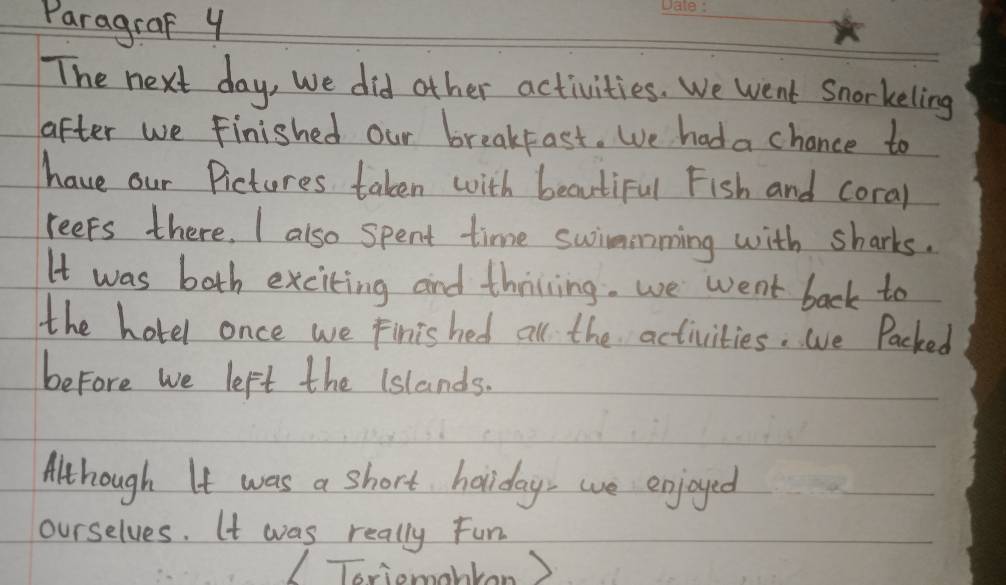 Date :
Paragraf 4
The next day, we did other activities. We went Snorkeling
after we Finished our breakfast. We had a chance to
have our Pictures taken with beautiful Fish and coral
reefs there. I also spent time swimming with sharks.
It was both exciting and thriiiing. we went back to
the hotel once we Finished all the activities. We Packed
before we left the Islands.
Although It was a short haiiday, we enjoyed
ourselves. It was really Fun
( Terjemahkan )